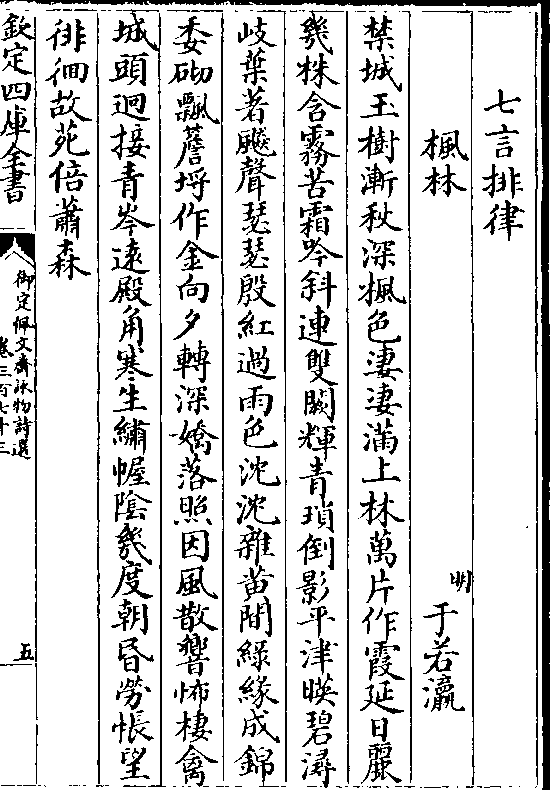 七言排律
楓林
明 于若瀛
禁城玉樹漸秋深楓色淒淒滿上林萬片作霞延日麗
幾株含霧苦霜吟斜連雙闕輝青瑣倒影平津暎碧潯
岐葉著飈聲瑟瑟殷紅過雨色沈沈雜黄間綠緣成錦
委砌飄簷埒作金向夕轉深嬌落照因風散響怖棲禽
城頭迥接青岑遠殿角寒生繡幄陰幾度朝昏勞悵望
徘徊故苑倍蕭森
欽定四庫全書
御定佩文齋詠物詩選
卷三百七十三
五